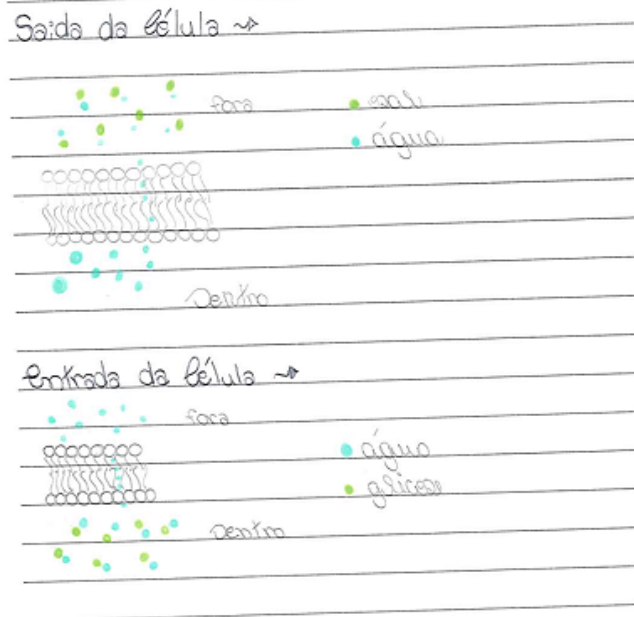 Saída da célula ⤳
fora
sal
água
Dentro
entrada da célula ⤳
fora
água
glicose
Dentro